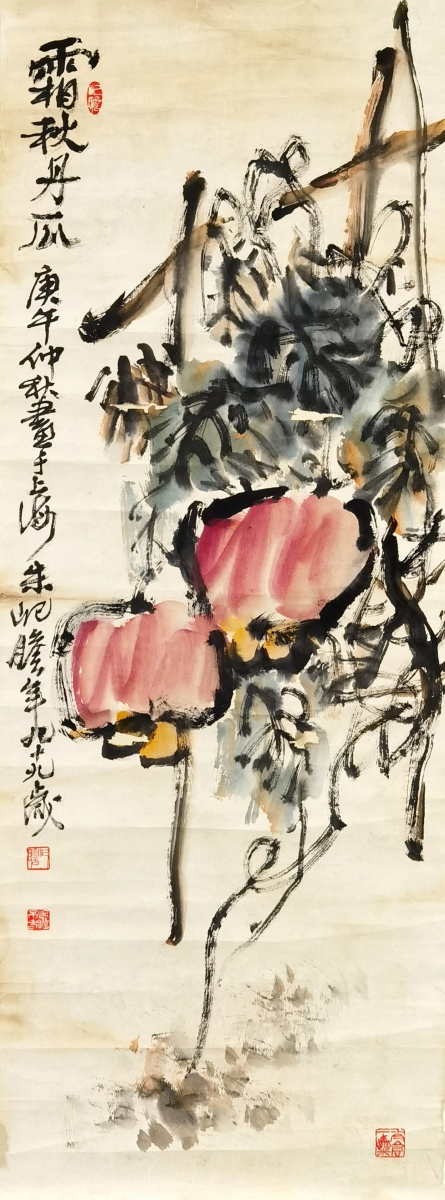 霜秋丹瓜
庚午仲秋画于上海朱屺瞻年九十九岁